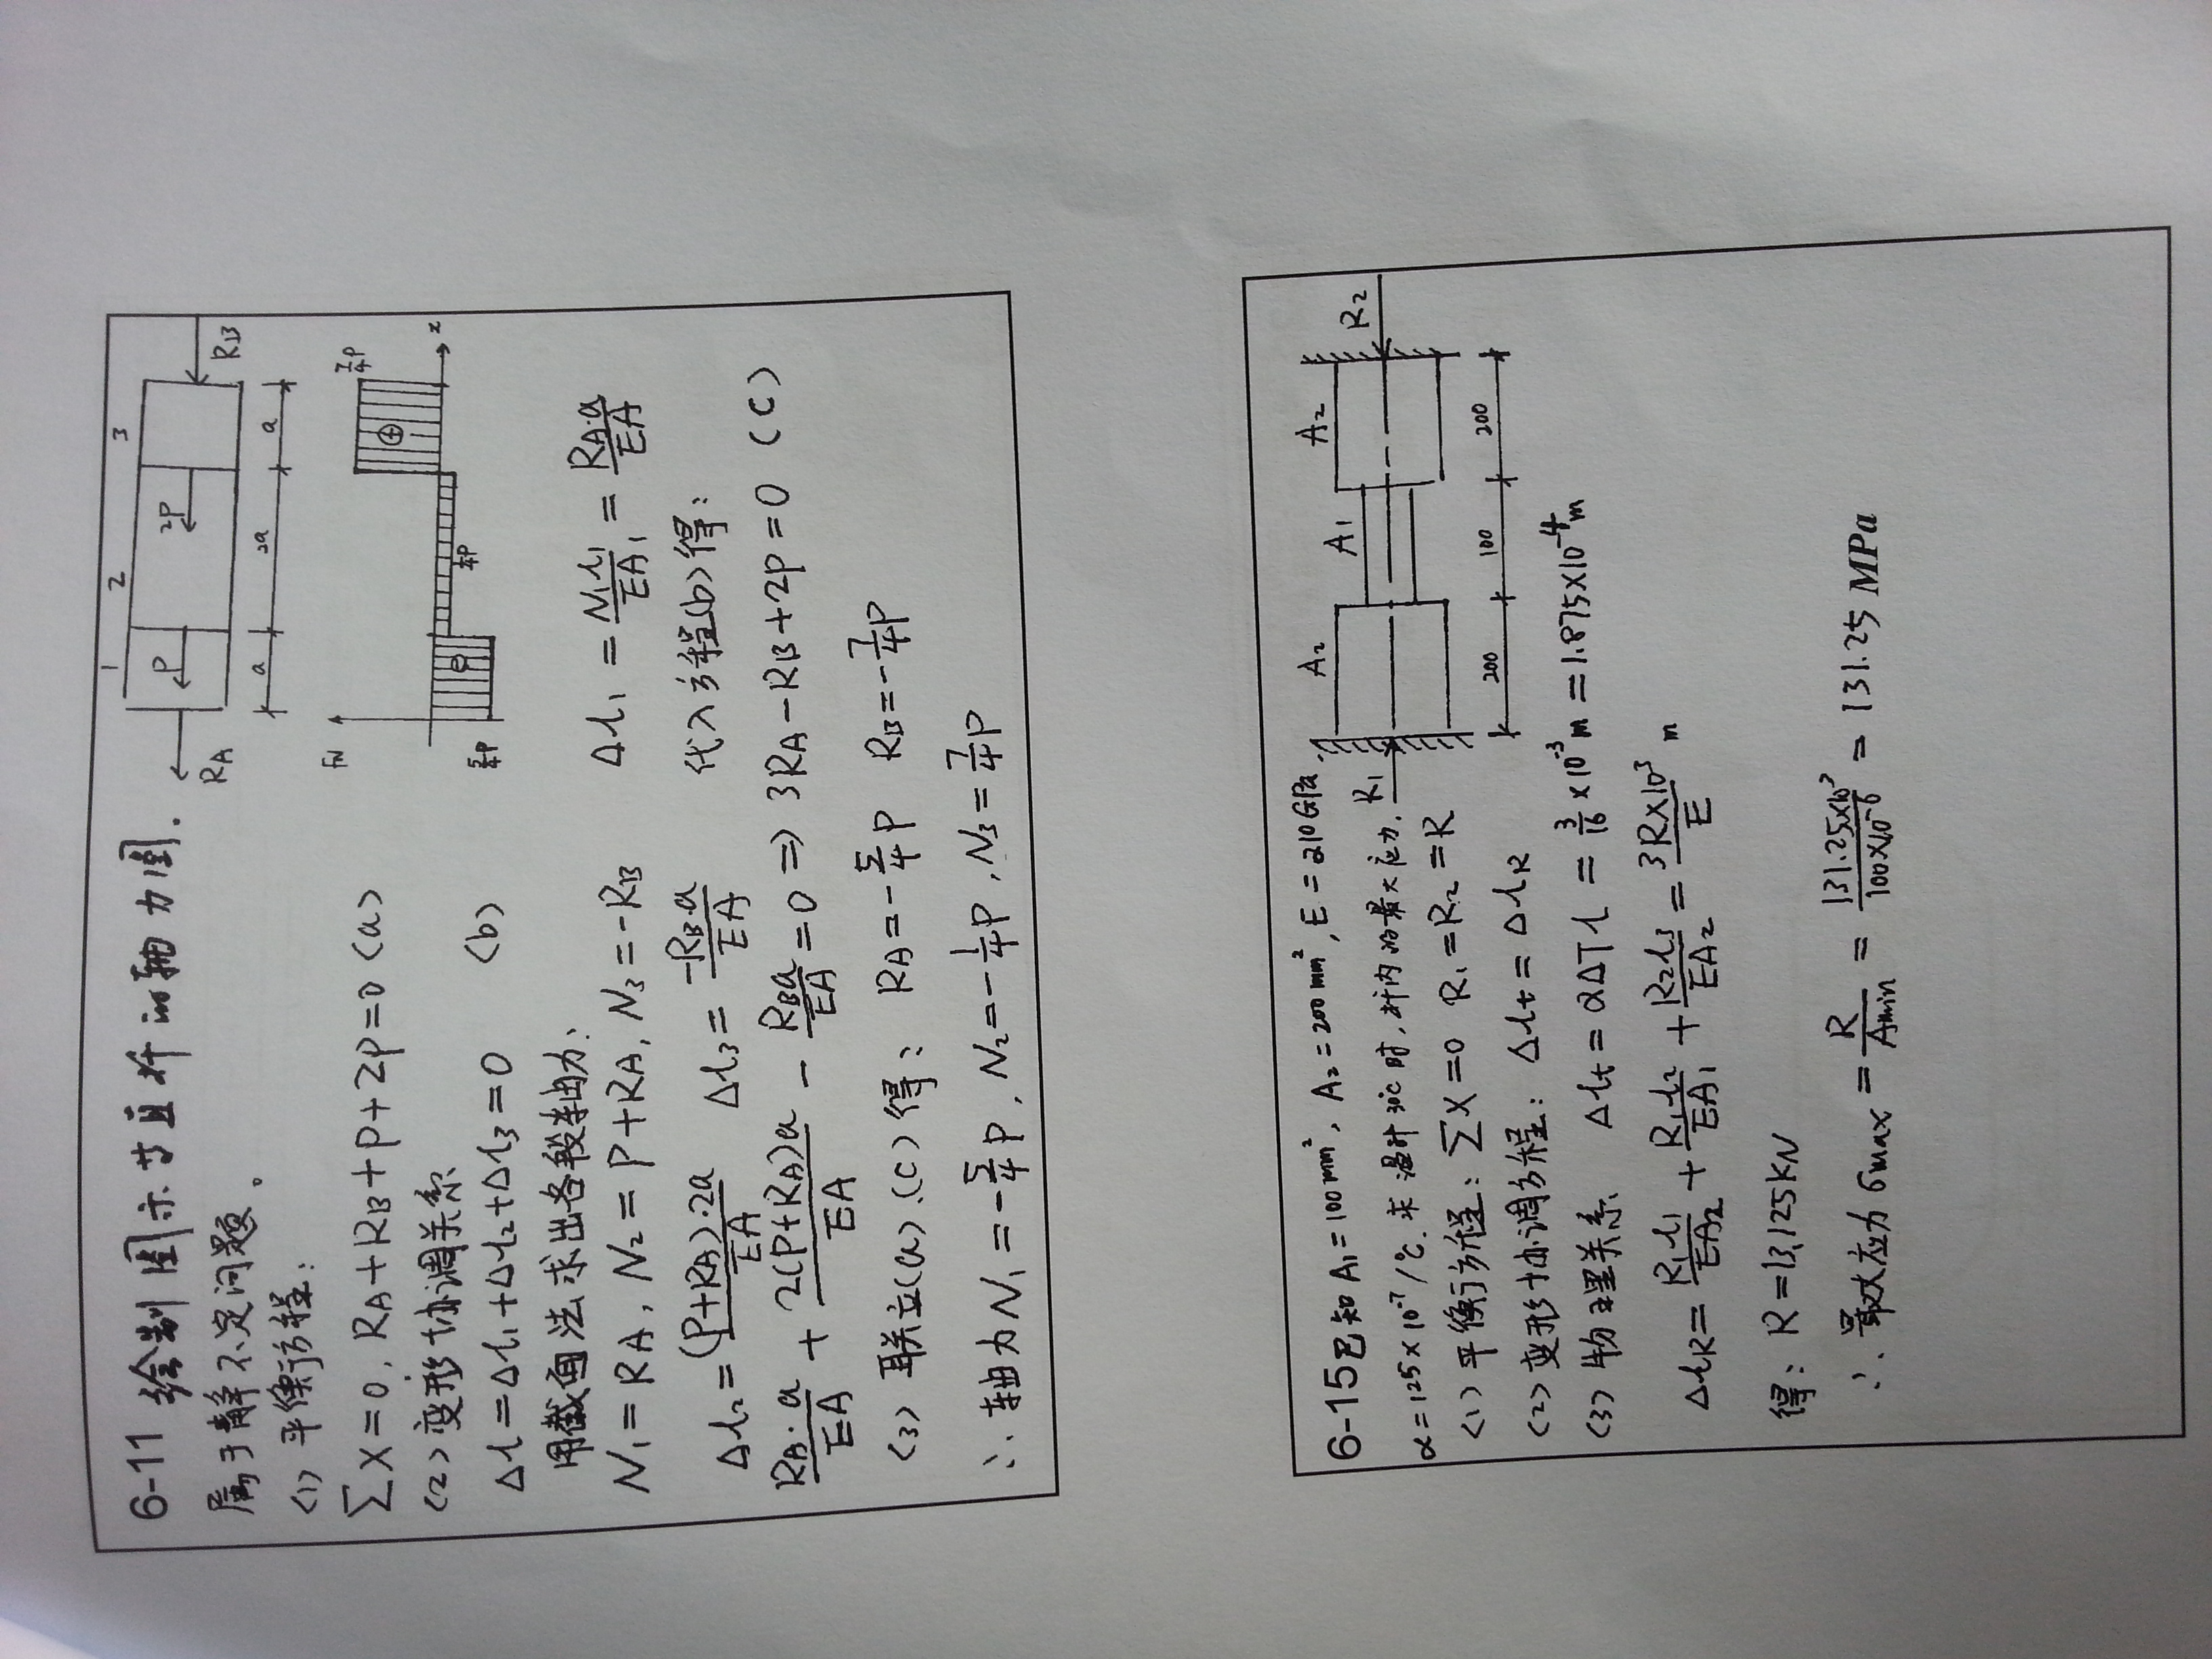 6-11 绘制图示等直杆的轴力图.
属于静不定问题。
<1> 平衡方程:
∑X=0, RA+RB+P+2P=0 <a>
<2> 变形协调关系
Δl=Δl1+Δl2+Δl3=0 <b>
用截面法求出各段轴力:
N1=RA, N2=P+RA, N3=-RB
Δl1=N1l1/EA1=RA·a/EA
Δl2=(P+RA)·2a/EA Δl3=-RB·a/EA
代入方程(b)得:
RA·a/EA + 2(P+RA)a/EA - RBa/EA=0 => 3RA-RB+2P=0 (C)
<3> 联立(a).(C)得: RA=-5/4P RB=-7/4P
∴ 轴力为 N1=-5/4P, N2=-1/4P, N3=7/4P
1 2 3
P 2P
RA RB
a 2a a
FN
7/4P
⊕
x
⊖
1/4P
5/4P
6-15 已知 A1=100mm², A2=200mm², E=210GPa.
α=125×10⁻⁷/℃. 求温升30℃时,杆内的最大应力.
<1> 平衡方程: ∑X=0 R1=R2=R
<2> 变形协调方程: Δlt=ΔlR
<3> 物理关系 Δlt=αΔTl=3/16×10⁻³m=1.875×10⁻⁴m
ΔlR=R1l1/EA2+R1l2/EA1+R2l3/EA2=3R×10³/E m
得: R=13,125KN
∴ 最大应力 σmax=R/Amin=131.25×10³/100×10⁻⁶=131.25 MPa
A2 A1 A2
R1 R2
200 100 200